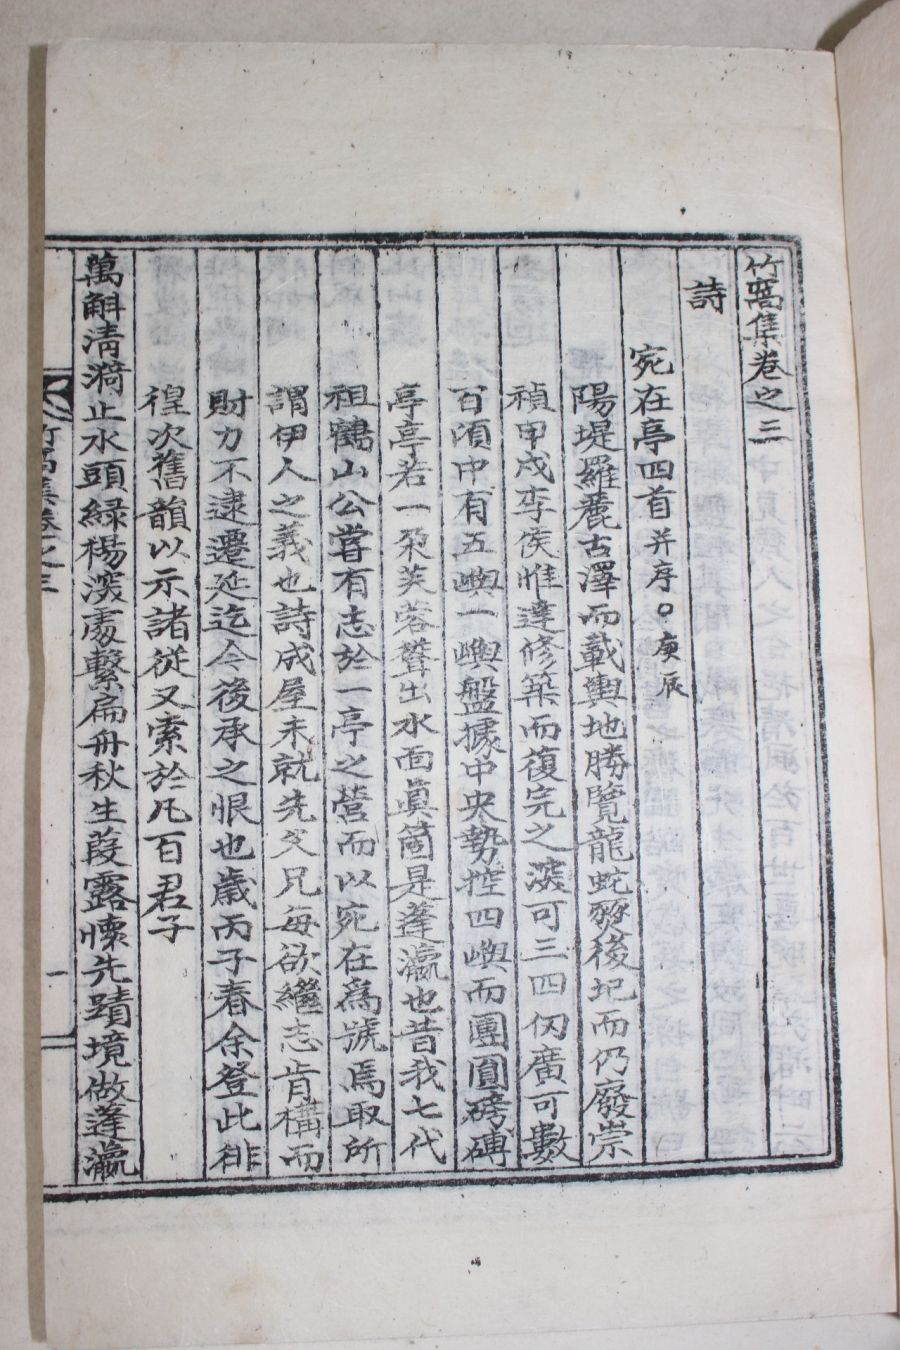 竹窩集卷之三
詩
宛在亭四首并序○庚辰
陽堤羅麗古澤而載輿地勝覽龍蛇發後圯而仍廢崇
禎甲戌李侯惟達修築而復完之深可三四仞廣可數
百頃中有五嶼一嶼盤據中央勢控四嶼而團圓磅礴
亭亭若一朶芙蓉聳出水面眞箇是蓬瀛也昔我七代
祖鶴山公嘗有志於一亭之營而以宛在爲號焉取所
謂伊人之義也詩成屋未就先父兄每欲繼志肯構而
財力不逮遷延迄今後承之恨也歲丙子春余登此徘
徨次舊韻以示諸從又索於凡百君子
萬斛淸漪止水頭綠楊深處繫扁舟秋生葭露懷先蹟境倣蓬瀛
竹窩集卷之三
一